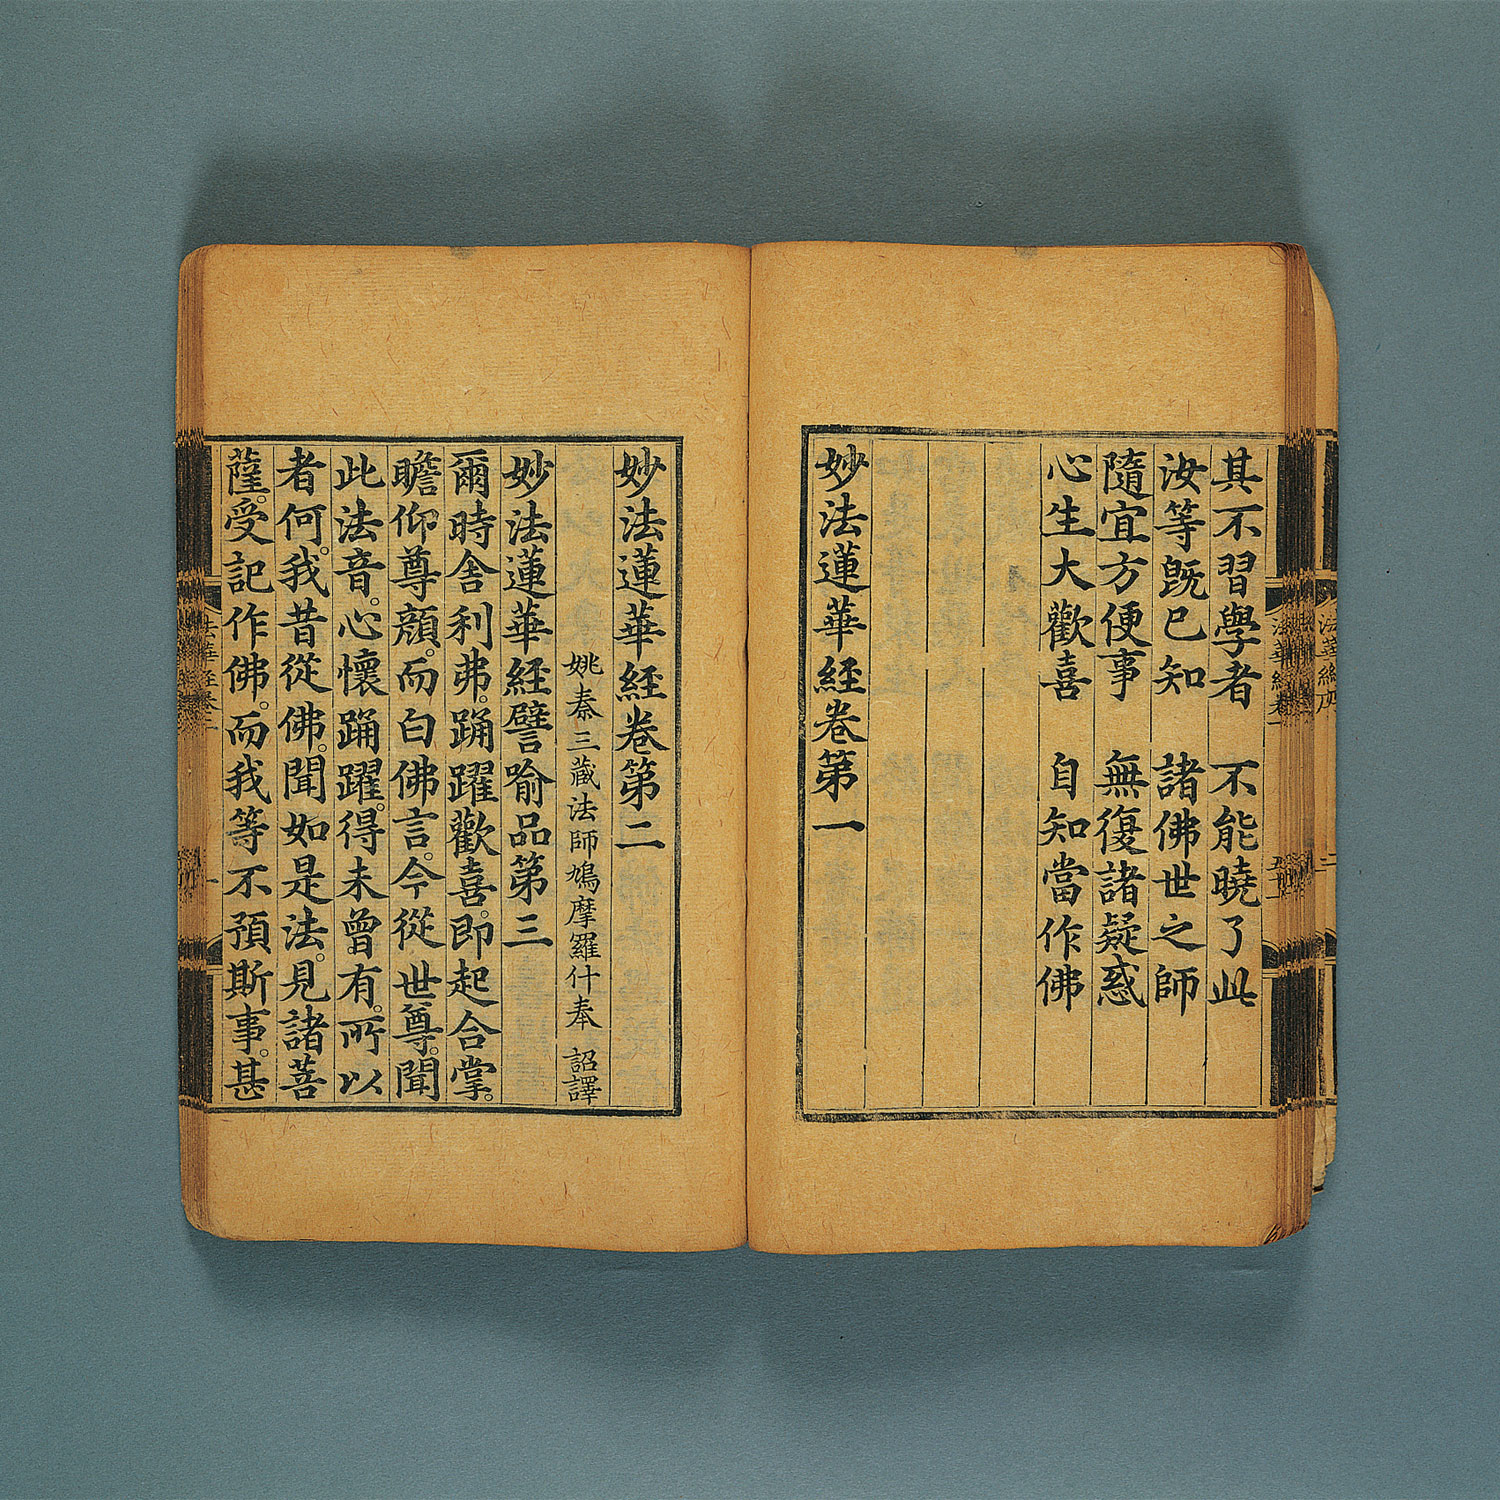 其不習學者　不能曉了此
汝等既已知　諸佛世之師
隨宜方便事　無復諸疑惑
心生大歡喜　自知當作佛
妙法蓮華経卷第一
妙法蓮華経卷第二
姚秦三藏法師鳩摩羅什奉　詔譯
妙法蓮華経譬喻品第三
爾時舍利弗。踊躍歡喜。即起合掌。
瞻仰尊顔。而白佛言。今從世尊。聞
此法音。心懷踊躍。得未曾有。所以
者何。我昔從佛。聞如是法。見諸菩
薩。受記作佛。而我等不預斯事。甚